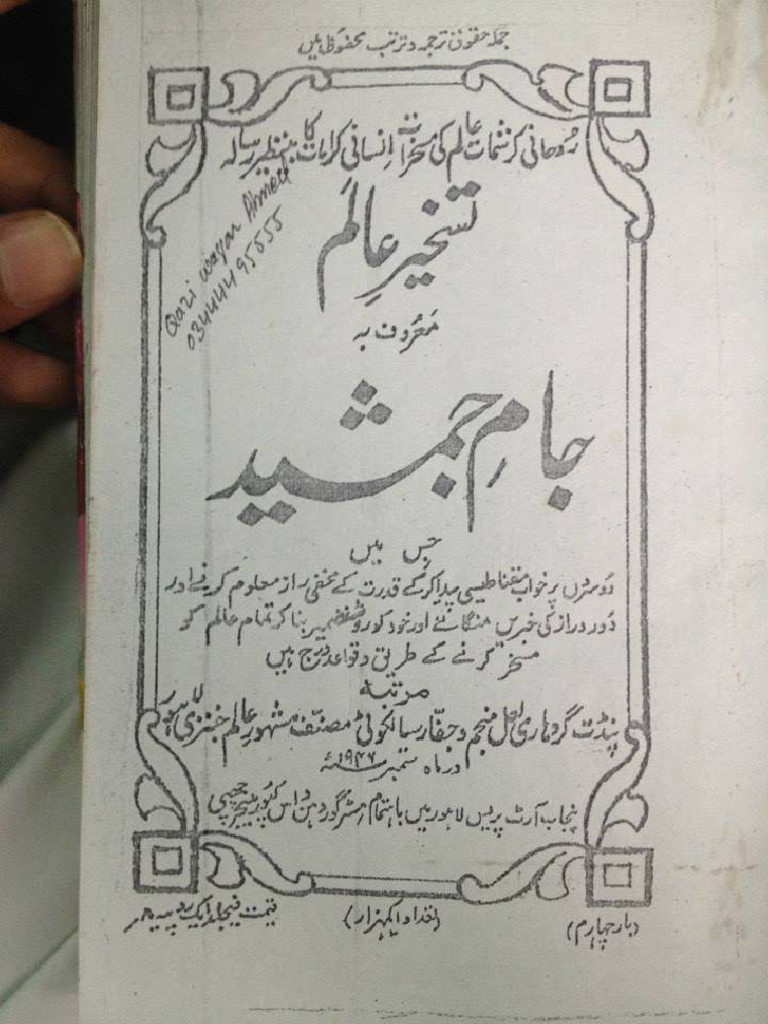 جملہ حقوق ترجمہ و ترتیب محفوظ ہیں
روحانی کرشمات عالم کی مسخرانہ انسانی کرامات کا بینظیر رسالہ
تسخیرِ عالَم
Qazi Waqar Ahmed
03444495655
معروف بہ
جامِ جمشید
جس میں
دوسروں پر خواب مقناطیسی پیدا کر کے قدرت کے مخفی راز معلوم کرنے اور
دور دراز کی خبریں منگانے اور خود کو روشنضمیر بنا کر تمام عالم کو
مسخر کرنے کے طریق و قواعد درج ہیں
مرتبہ
پنڈت گردھاری لعل منجم و جفار سیالکوٹی مصنف مشہور عالم جنتری لاہور
در ماہ ستمبر ۱۹۴۶ئہ
پنجاب آرٹ پریس لاہور میں باہتمام مسٹر گوردہن داس کپور مینیجر چھپی
(بار چہارم)
(تعداد ایکہزار)
قیمت فیجلد ایک روپیہ